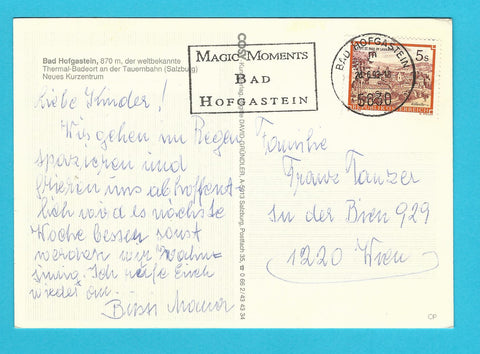 Bad Hofgastein, 870 m, der weltbekannte
Thermal-Badeort an der Tauernbahn (Salzburg)
Neues Kurzentrum
MAGIC MOMENTS
BAD
HOFGASTEIN
BAD HOFGASTEIN
5630
5s
Liebe Kinder!
Wir gehen im Regen
spazieren und
frieren uns ab hoffent-
lich wird es nächste
Woche besser sonst
werden wir Wahn-
sinnig. Ich rufe Euch
wieder an...
Bussi
Familie
Franz Tanzer
In der Bien 929
1220 Wien
CP